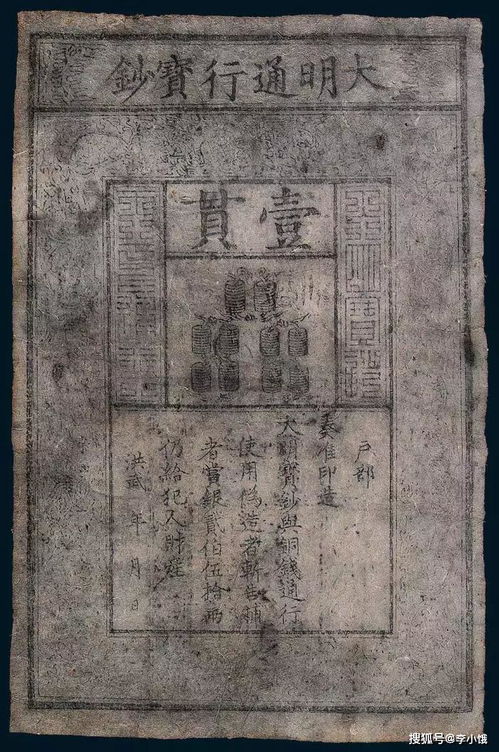 大明通行寶鈔
壹貫
大明寶鈔
天下通行
户部
奏准印造
大明寶鈔與銅錢通行
使用偽造者斬告捕
者賞銀貳伯伍拾兩
仍給犯人財產
洪武 年 月 日
搜狐号@李小饿